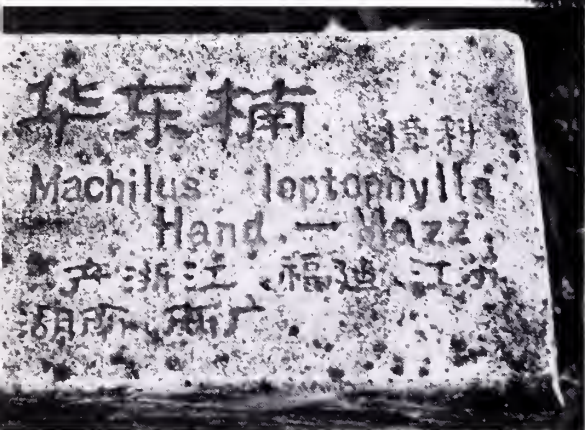 华东楠 樟科
Machilus leptophylla
Hand — Mazz
产浙江、福建、江苏
湖南、两广